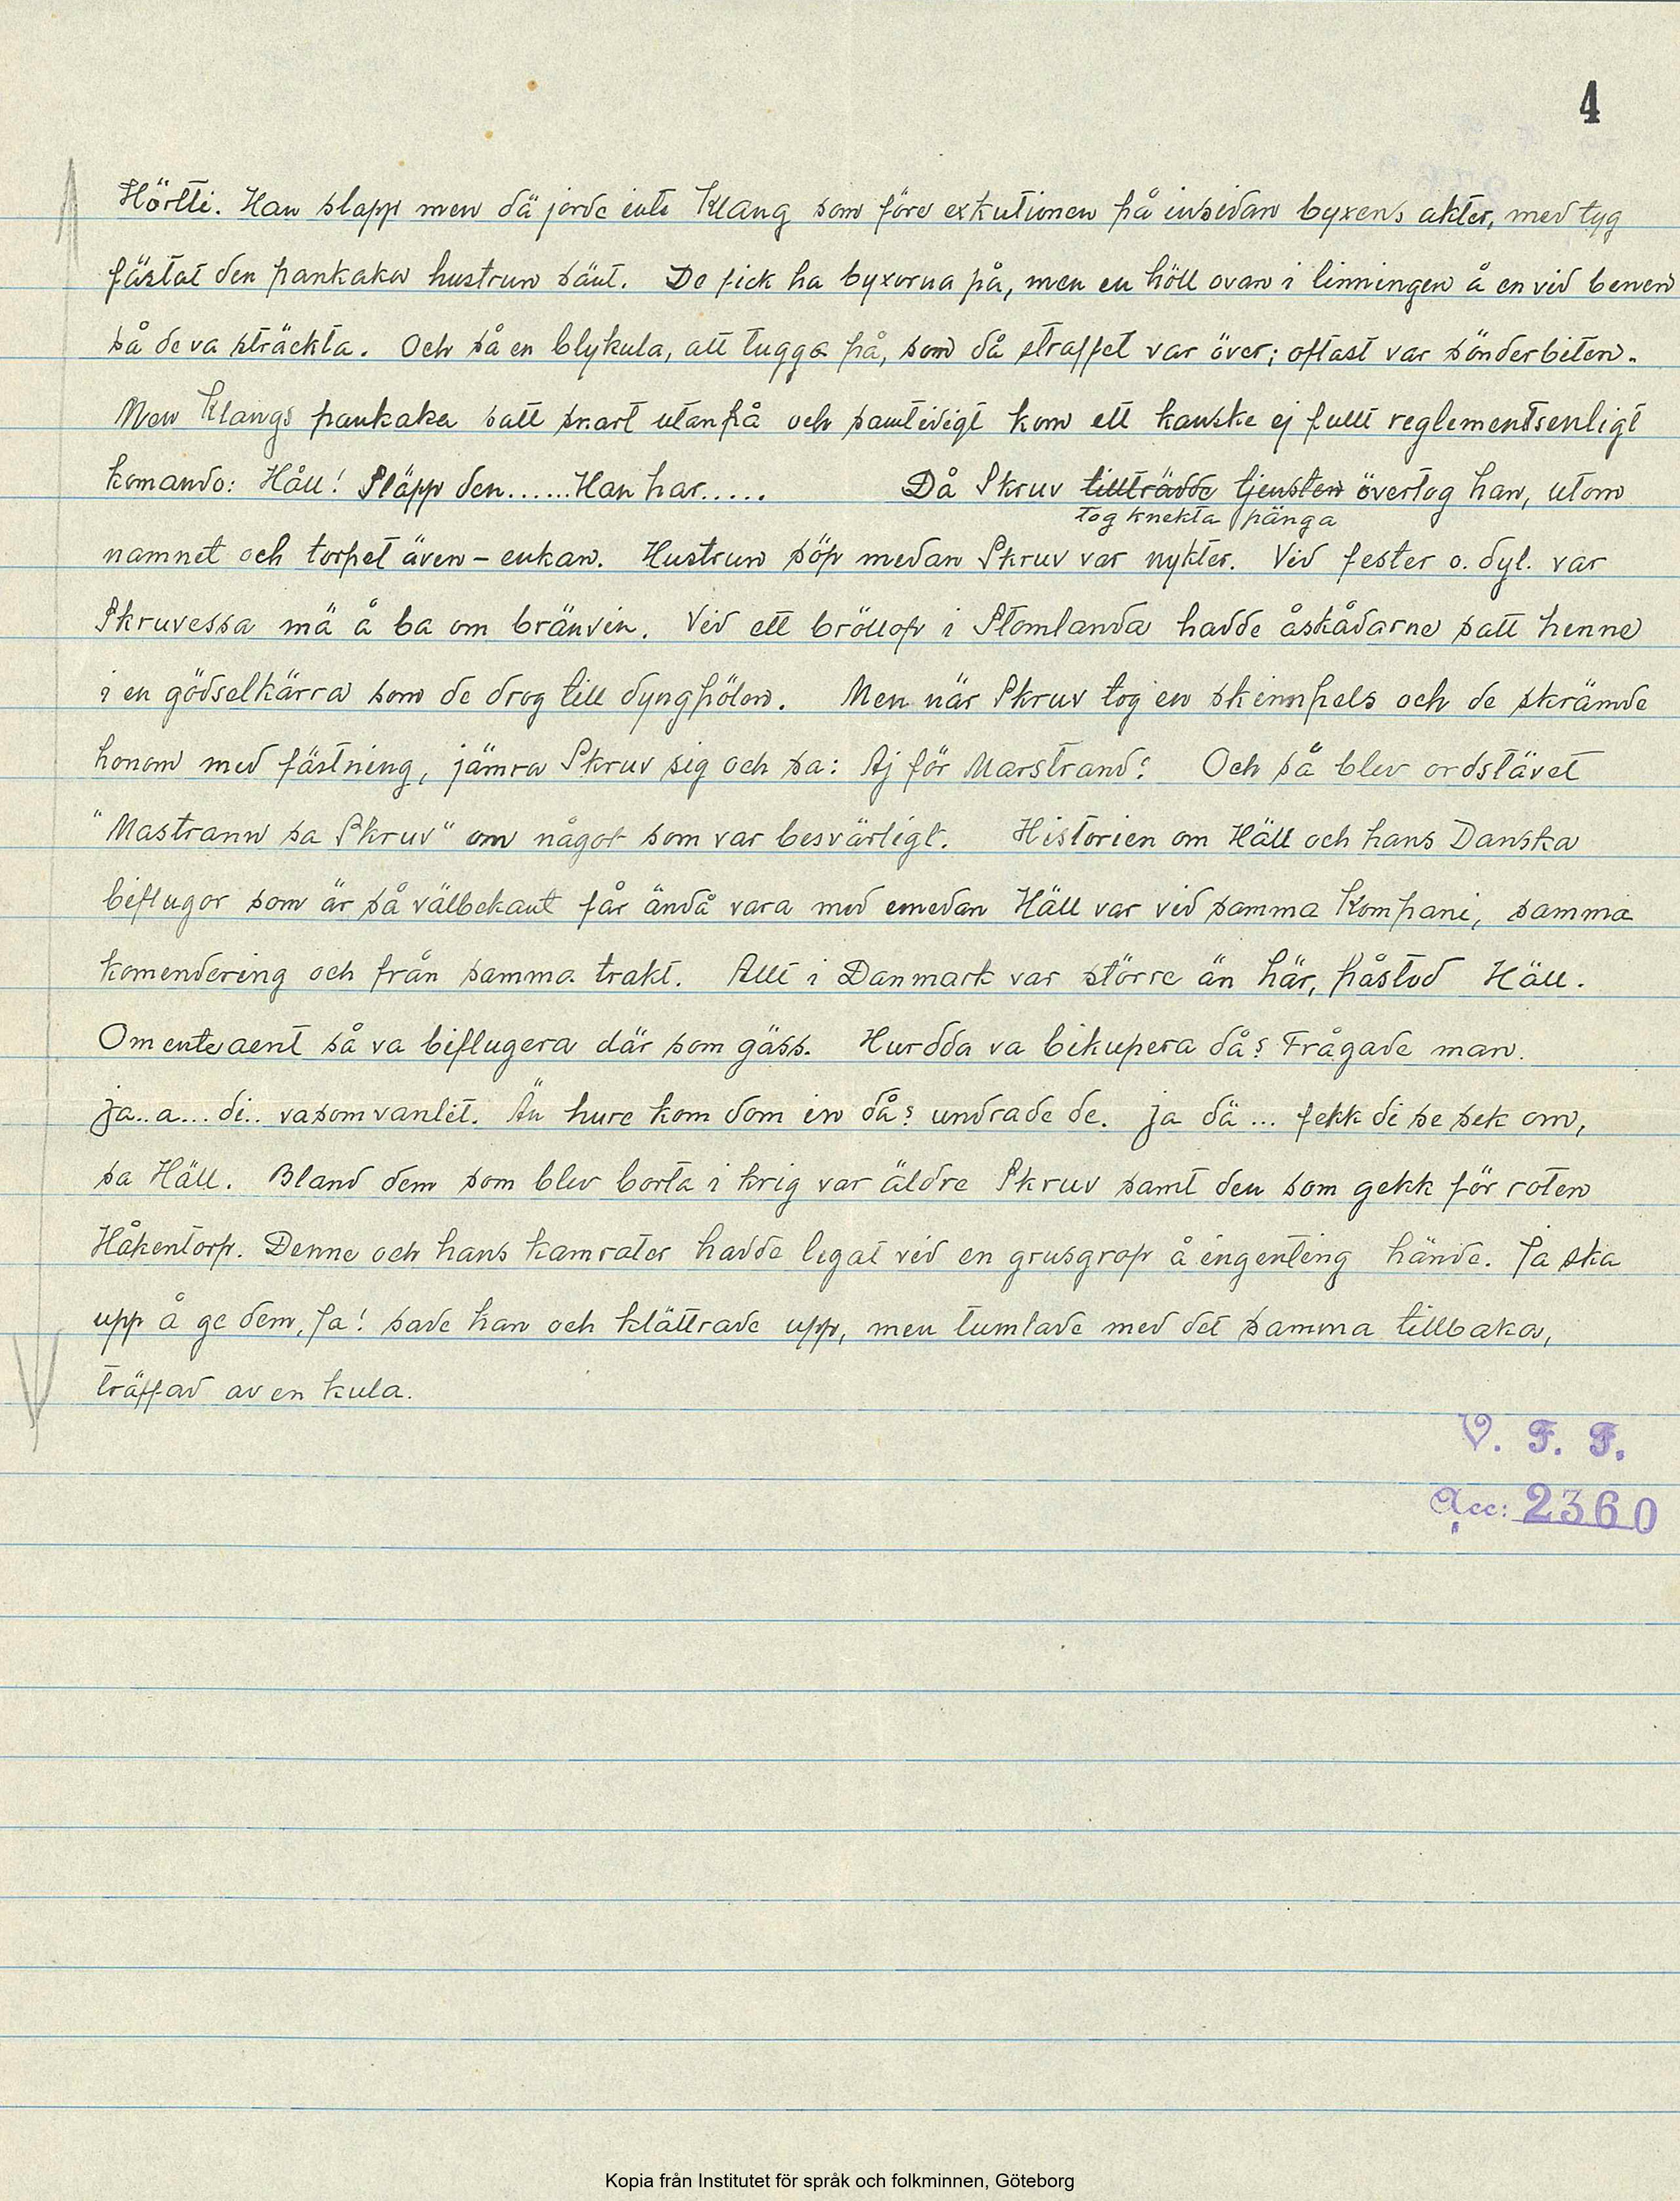 4
Hörtti. Han slapp men dä jorde inte Klang som före exkutionen på insidan byxens akter, med tyg
fästat den pankaka hustrun sänt. De fick ha byxorna på, men en höll ovan i linningen å en vid benen
så de va sträckta. Och så en blykula, att tugga på, som då straffet var över; oftast var sönderbiten.
Men Klangs pankaka satt snart utanpå och samtidigt kom ett kanske ej fullt reglementsenligt
komando: Håll! Släpp den......Han har..... Då Skruv tillträdde tjensten övertog han, utom
tog knekta pänga
namnet och torpet även - enkan. Hustrun söp medan Skruv var nykter. Vid fester o. dyl. var
Skruvessa mä å ba om bränvin. Vid ett bröllop i Stomlanda hadde åskådarne satt henne
i en gödselkärra som de drog till dyngpölen. Men när Skruv tog en skinnpels och de skrämde
honom med fästning, jämra Skruv sig och sa: Aj för Marstrand! Och så blev ordstävet
"Mastrann sa Skruv" om något som var besvärligt. Historien om Häll och hans Danska
biflugor som är så välbekant får ändå vara med emedan Häll var vid samma Kompani, samma
komendering och från samma trakt. Allt i Danmark var större än här, påstod Häll.
Om ente aent så va biflugera där som gäss. Hurdda va bikupera då? Frågade man.
ja..a... di.. va som vanlit. Än hure kom dom in då? undrade de. ja dä ... fekk di se sek om,
sa Häll. Bland dem som blev borta i krig var äldre Skruv samt den som gekk för roten
Håkentorp. Denne och hans kamrater hadde legat vid en grusgrop å ingenting hände. Ja ska
upp å ge dem, Ja! sade han och klättrade upp, men tumlade med det samma tillbaka,
träffad av en kula.
V. F. F.
Acc: 2360
Kopia från Institutet för språk och folkminnen, Göteborg